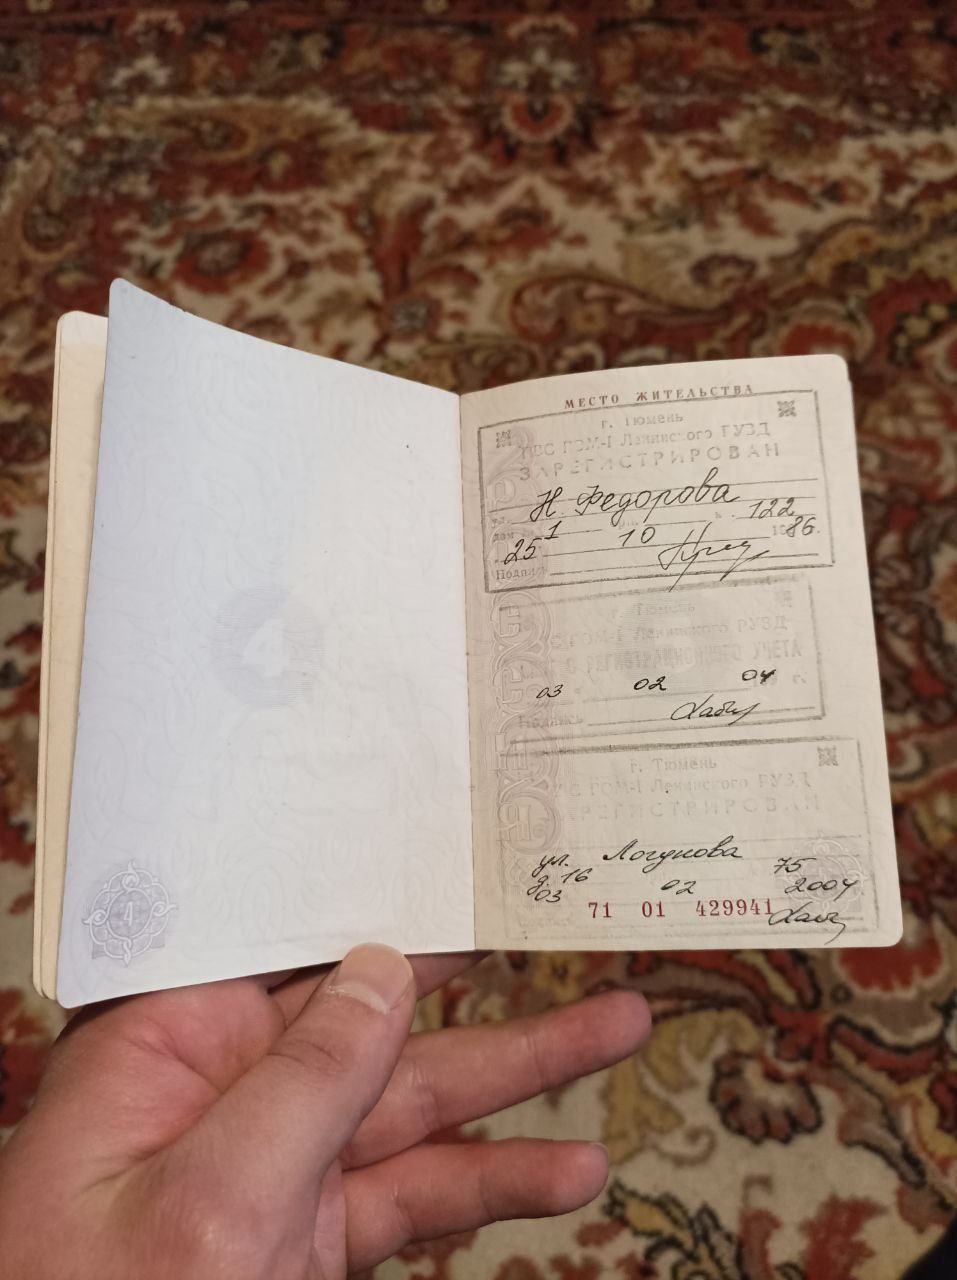 МЕСТО ЖИТЕЛЬСТВА
г. Тюмень
ПВС ГОМ-1 Ленинского РУВД
ЗАРЕГИСТРИРОВАН
Н. Федорова
дом 1 к. 122
25 10 1986г.
Подпись
г. Тюмень
ГОМ-1 Ленинского РУВД
С РЕГИСТРАЦИОННОГО УЧЕТА
03 02 04 г.
Подпись
г. Тюмень
ГОМ-1 Ленинского РУВД
ЗАРЕГИСТРИРОВАН
ул. Логунова
д. 16 75
03 02 2004
71 01 429941
4